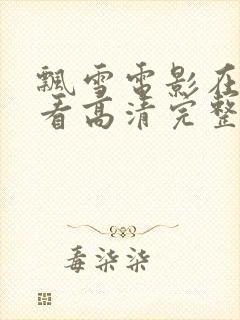 飘雪电影在
看高清完整
毒柒柒